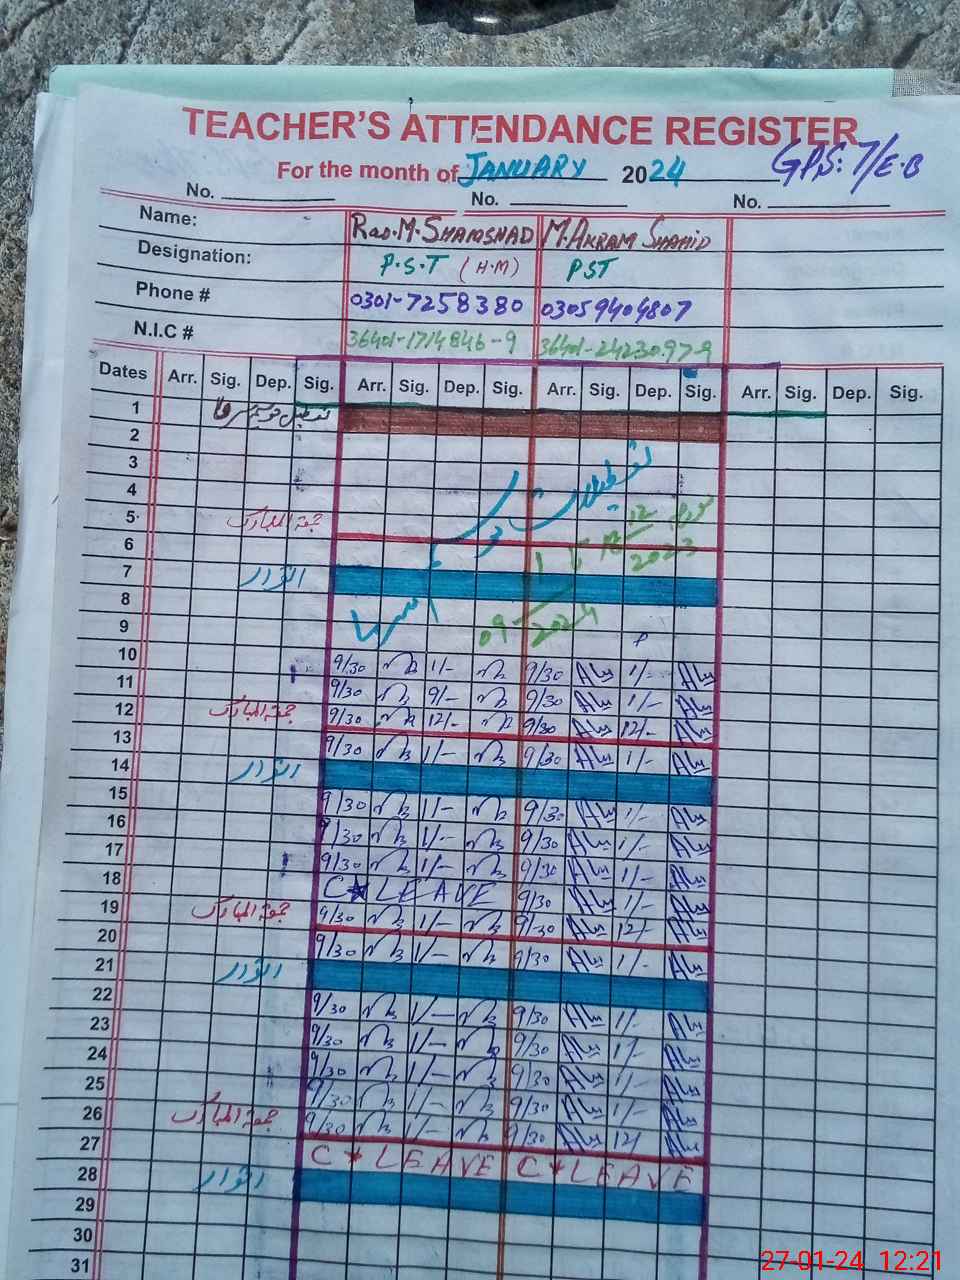 TEACHER'S ATTENDANCE REGISTER
For the month of JANUARY 2024 GPS: 7/E.B
No. No. No.
Name: Rao.M.SHAMSHAD M.AKRAM SHAHID
Designation: P.S.T (H.M) PST
Phone # 0301-7258380 03059404807
N.I.C # 36401-1714846-9 36401-2423097-9
Dates Arr. Sig. Dep. Sig. Arr. Sig. Dep. Sig. Arr. Sig. Dep. Sig. Arr. Sig. Dep. Sig.
1 تعطیل موسم سرما
2
3 تعطیلات
4 موسم
5 جمعۃ المبارک 12
6 2023
7 اتوار 1
8 سرما 09 2024
9
10 9/30 1/- 9/30 1/-
11 9/30 9/- 9/30 1/-
12 جمعۃ المبارک 9/30 12/- 9/30 12/-
13 9/30 1/- 9/30 1/-
14 اتوار
15 9/30 1/- 9/30 1/-
16 9/30 1/- 9/30 1/-
17 9/30 1/- 9/30 1/-
18 C * LEAVE 9/30 1/-
19 جمعۃ المبارک 9/30 1/- 9/30 12/-
20 9/30 1/- 9/30 1/-
21 اتوار
22 9/30 1/- 9/30 1/-
23 9/30 1/- 9/30 1/-
24 9/30 1/- 9/30 1/-
25 9/30 1/- 9/30 1/-
26 جمعۃ المبارک 9/30 1/- 9/30 12/
27 C * LEAVE C * LEAVE
28 اتوار
29
30
31
27-01-24 12:21